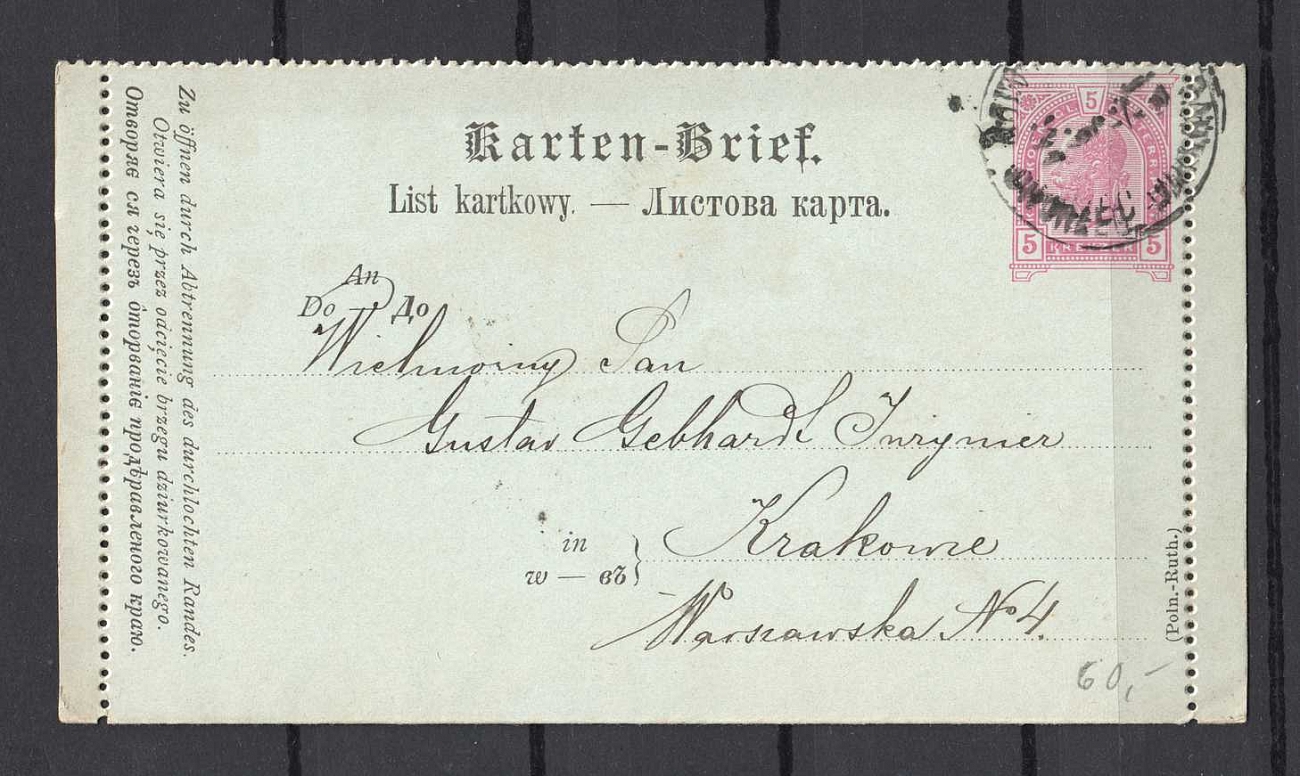 Karten-Brief.
List kartkowy. — Листова карта.
An
Do До
Wielmożny Pan
Gustav Gebhardt Inżynier
in
w — въ
Krakowie
Warszawska No 4.
(Poln.-Ruth.)
60,-
Zu öffnen durch Abtrennung des durchlochten Randes.
Otwiera się przez odcięcie brzegu dziurkowanego.
Отворяє ся черезъ оторваніє продѣравленого краю.
5
5 KREUZER 5